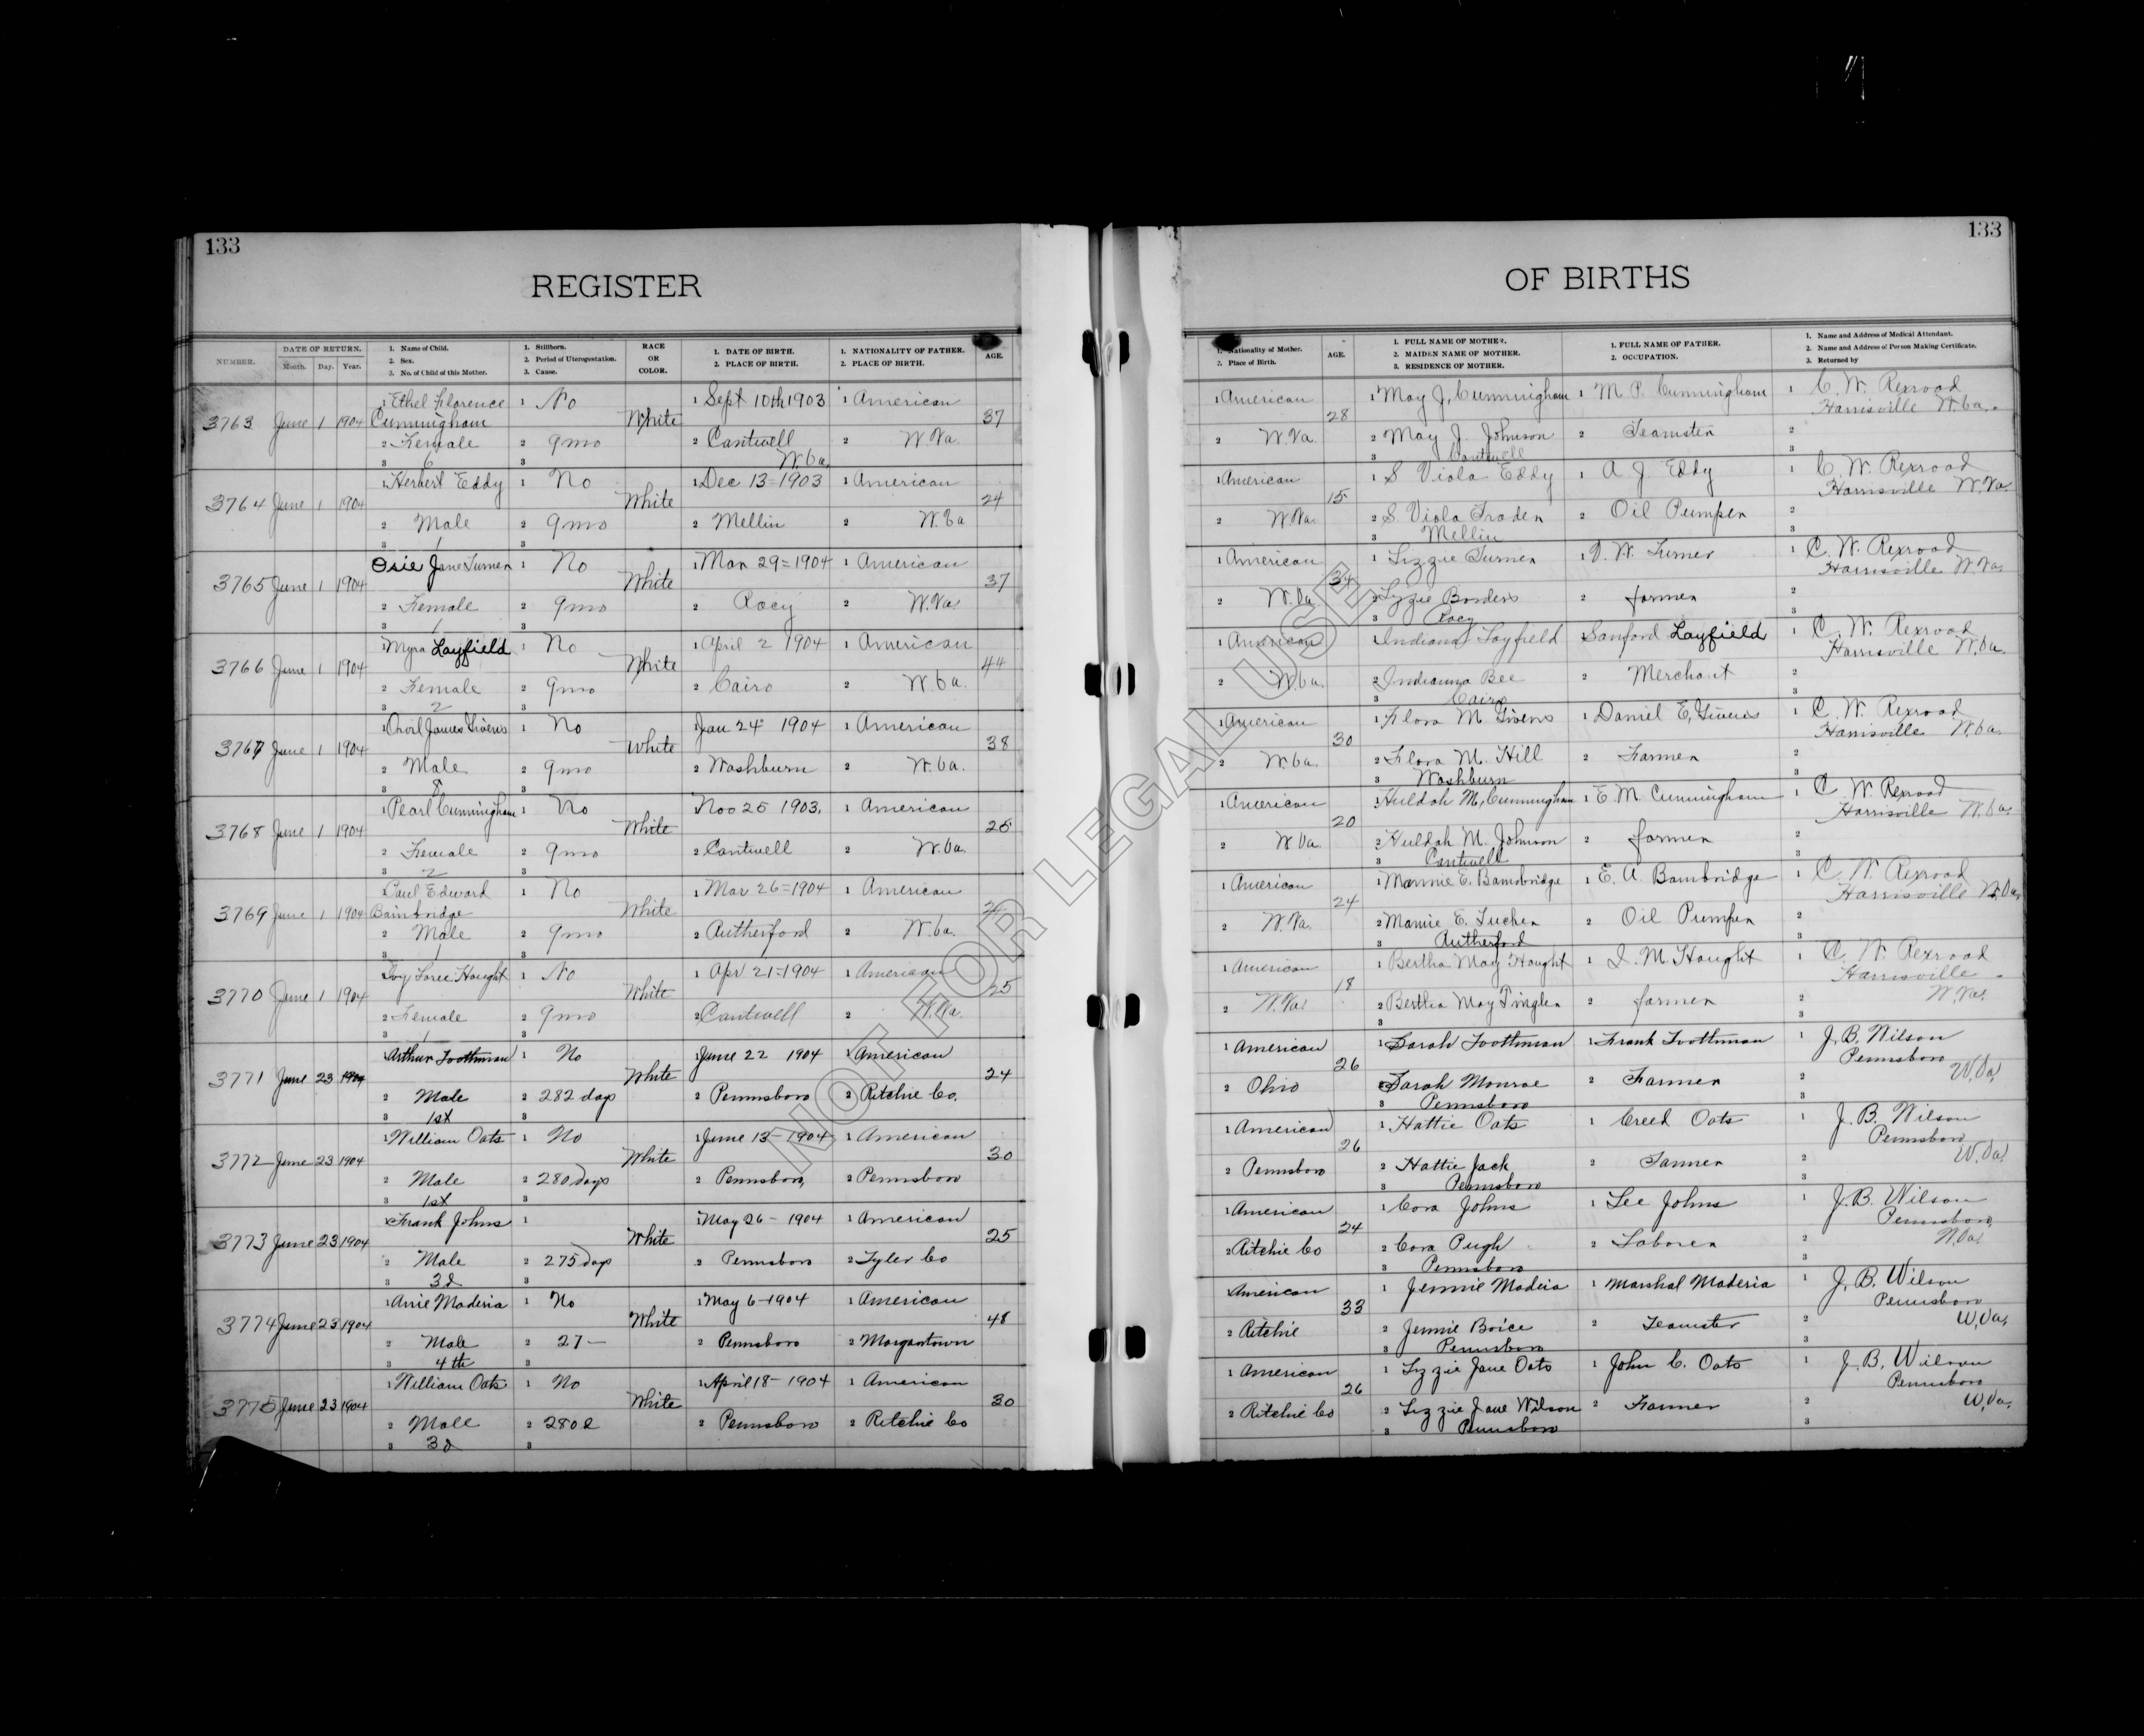 133
REGISTER
NUMBER.
DATE OF RETURN.
Month. Day. Year.
1. Name of Child.
2. Sex.
3. No. of Child of this Mother.
1. Stillborn.
2. Period of Uterogestation.
3. Cause.
RACE
OR
COLOR.
1. DATE OF BIRTH.
2. PLACE OF BIRTH.
1. NATIONALITY OF FATHER.
2. PLACE OF BIRTH.
AGE.
3763 June 1 1904 1 Ethel Florence 1 No White 1 Sept 10th 1903 1 American 37
Cunningham
2 Female 2 9mo 2 Cantwell 2 W.Va.
3 6 3 W.Va.
3764 June 1 1904 1 Herbert Eddy 1 No White 1 Dec 13=1903 1 American 24
2 Male 2 9mo 2 Mellin 2 W.Va
3 1 3
3765 June 1 1904 Osie Jane Turner 1 No White 1 Mar 29=1904 1 American 37
2 Female 2 9mo 2 Racy 2 W.Va.
3 1 3
3766 June 1 1904 1 Myra Layfield 1 No White 1 April 2 1904 1 American 44
2 Female 2 9mo 2 Cairo 2 W.Va.
3 2 3
3767 June 1 1904 1 Orvil James 1 No White 1 Jan 24 1904 1 American 38
2 Male 2 9mo 2 Washburn 2 W.Va.
3 8 3
3768 June 1 1904 1 Pearl Cunningham 1 No White 1 Nov 25 1903. 1 American 25
2 Female 2 9mo 2 Cantwell 2 W.Va.
3 2 3
3769 June 1 1904 Paul Edward 1 No White 1 Mar 26=1904 1 American
Bainbridge
2 Male 2 9mo 2 Rutherford 2 W.Va.
3 1 3
3770 June 1 1904 Ivy Haught 1 No White 1 Apr 21=1904 1 American 25
2 Female 2 9mo 2 Cantwell 2 W.Va.
3 1 3
3771 June 23 1904 1 Arthur Toothman 1 No White 1 June 22 1904 1 American 24
2 Male 2 282 days 2 Pennsboro 2 Ritchie Co.
3 1st 3
3772 June 23 1904 1 William Oats 1 No White 1 June 13-1904 1 American 30
2 Male 2 280 days 2 Pennsboro, 2 Pennsboro
3 1st 3
3773 June 23 1904 1 Frank Johns 1 White 1 May 26-1904 1 American 25
2 Male 2 275 days 2 Pennsboro 2 Tyler Co
3 3d 3
3774 June 23 1904 1 Arrie Maderia 1 No White 1 May 6-1904 1 American 48
2 Male 2 27- 2 Pennsboro 2 Morgantown
3 4th 3
3775 June 23 1904 1 William Oats 1 No White 1 April 18-1904 1 American 30
2 Male 2 280 d 2 Pennsboro 2 Ritchie Co
3 3d 3
133
OF BIRTHS
1. Nationality of Mother.
2. Place of Birth.
AGE.
1. FULL NAME OF MOTHER.
2. MAIDEN NAME OF MOTHER.
3. RESIDENCE OF MOTHER.
1. FULL NAME OF FATHER.
2. OCCUPATION.
1. Name and Address of Medical Attendant.
2. Name and Address of Person Making Certificate.
3. Returned by
1 American 28 1 May J. Cunningham 1 M. P. Cunningham 1 C. W. Rexroad
Harrisville W.Va.
2 W.Va. 2 May J. Johnson 2 Teamster 2
3 Cantwell 3
1 American 15 1 S Viola Eddy 1 A. J. Eddy 1 C. W. Rexroad
Harrisville W.Va.
2 W.Va. 2 S. Viola Traden 2 Oil Pumper 2
3 Mellin 3
1 American 34 1 Lizzie Turner 1 W. Turner 1 C. W. Rexroad
Harrisville W.Va.
2 W.Va. 2 Lizzie Borders 2 farmer 2
3 Racy 3
1 American 1 Indiana Layfield Sanford Layfield 1 C. W. Rexroad
Harrisville W.Va.
2 W.Va. 2 Indianna Bee 2 Merchant 2
3 Cairo 3
1 American 30 1 Flora M 1 Daniel E. 1 C. W. Rexroad
Harrisville W.Va.
2 W.Va. 2 Flora M. Hill 2 Farmer 2
3 Washburn 3
1 American 20 1 Huldah M. Cunningham 1 E. M. Cunningham 1 C. W. Rexroad
Harrisville W.Va.
2 W Va. 2 Huldah M. Johnson 2 farmer 2
3 Cantwell 3
1 American 24 1 Mamie E. Bainbridge 1 E. A. Bainbridge 1 C. W. Rexroad
Harrisville W.Va.
2 W.Va. 2 Mamie E. Tucker 2 Oil Pumper 2
3 Rutherford 3
1 American 18 1 Bertha May Haught 1 I. M. Haught 1 C. W. Rexroad
Harrisville
W.Va.
2 W.Va. 2 Bertha May Pingler 2 farmer 2
3 3
1 American 26 1 Sarah Toothman 1 Frank Toothman 1 J. B. Wilson
Pennsboro
W.Va.
2 Ohio 2 Sarah Monroe 2 Farmer 2
3 Pennsboro 3
1 American 26 1 Hattie Oats 1 Creed Oats 1 J. B. Wilson
Pennsboro
W.Va.
2 Pennsboro 2 Hattie Jack 2 Farmer 2
3 Pennsboro 3
1 American 24 1 Cora Johns 1 Lee Johns 1 J. B. Wilson
Pennsboro,
W.Va.
2 Ritchie Co 2 Cora Pugh 2 Laborer 2
3 Pennsboro 3
American 33 1 Jennie Madeia 1 Marshal Maderia 1 J. B. Wilson
Pennsboro
W.Va.
2 Ritchie 2 Jennie Boice 2 Teamster 2
3 Pennsboro 3
1 American 26 1 Lizzie Jane Oats 1 John C. Oats 1 J. B. Wilson
Pennsboro
W.Va.
2 Ritchie Co 2 Lizzie Jane Wilson 2 Farmer 2
3 Pennsboro 3
NOT FOR LEGAL USE